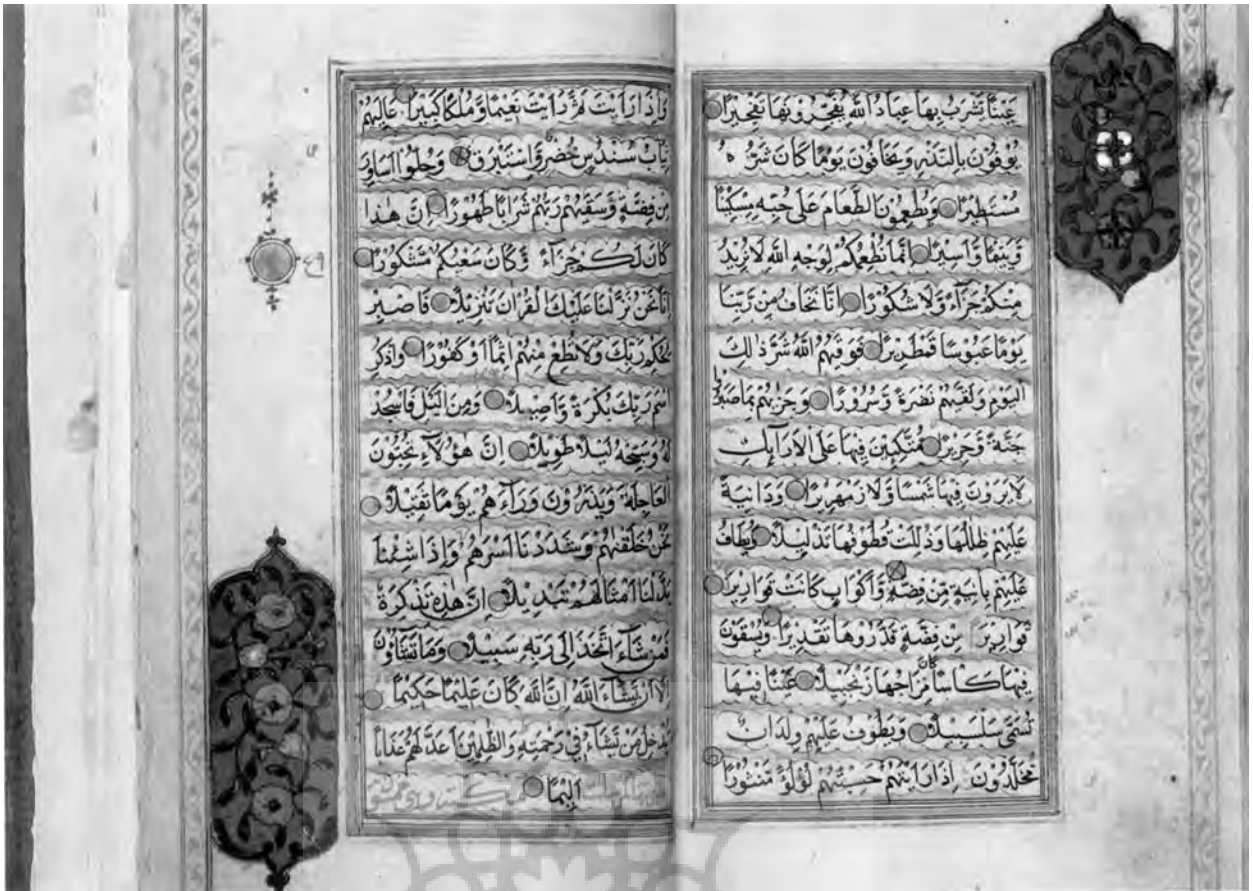 عَيْنًا يَشْرَبُ بِهَا عِبَادُ اللَّهِ يُفَجِّرُونَهَا تَفْجِيرًا
يُوفُونَ بِالنَّذْرِ وَيَخَافُونَ يَوْمًا كَانَ شَرُّهُ
مُسْتَطِيرًا وَيُطْعِمُونَ الطَّعَامَ عَلَى حُبِّهِ مِسْكِينًا
وَيَتِيمًا وَأَسِيرًا إِنَّمَا نُطْعِمُكُمْ لِوَجْهِ اللَّهِ لَا نُرِيدُ
مِنْكُمْ جَزَاءً وَلَا شُكُورًا إِنَّا نَخَافُ مِنْ رَبِّنَا
يَوْمًا عَبُوسًا قَمْطَرِيرًا فَوَقَيهُمُ اللَّهُ شَرَّ ذَلِكَ
الْيَوْمِ وَلَقَّيهُمْ نَضْرَةً وَسُرُورًا وَجَزَيهُمْ بِمَا صَبَرُوا
جَنَّةً وَحَرِيرًا مُتَّكِئِينَ فِيهَا عَلَى الْأَرَائِكِ
لَا يَرَوْنَ فِيهَا شَمْسًا وَلَا زَمْهَرِيرًا وَدَانِيَةً
عَلَيْهِمْ ظِلَالُهَا وَذُلِّلَتْ قُطُوفُهَا تَذْلِيلًا وَيُطَافُ
عَلَيْهِمْ بِآنِيَةٍ مِنْ فِضَّةٍ وَأَكْوَابٍ كَانَتْ قَوَارِيرَا
قَوَارِيرَ مِنْ فِضَّةٍ قَدَّرُوهَا تَقْدِيرًا وَيُسْقَوْنَ
فِيهَا كَأْسًا كَانَ مِزَاجُهَا زَنْجَبِيلًا عَيْنًا فِيهَا
تُسَمَّى سَلْسَبِيلًا وَيَطُوفُ عَلَيْهِمْ وِلْدَانٌ
مُخَلَّدُونَ إِذَا رَأَيْتَهُمْ حَسِبْتَهُمْ لُؤْلُؤًا مَنْثُورًا
وَإِذَا رَأَيْتَ ثَمَّ رَأَيْتَ نَعِيمًا وَمُلْكًا كَبِيرًا عَالِيَهُمْ
ثِيَابُ سُنْدُسٍ خُضْرٌ وَإِسْتَبْرَقٌ وَحُلُّوا أَسَاوِرَ
مِنْ فِضَّةٍ وَسَقَيهُمْ رَبُّهُمْ شَرَابًا طَهُورًا إِنَّ هَذَا
كَانَ لَكُمْ جَزَاءً وَكَانَ سَعْيُكُمْ مَشْكُورًا
إِنَّا نَحْنُ نَزَّلْنَا عَلَيْكَ الْقُرْآنَ تَنْزِيلًا فَاصْبِرْ
لِحُكْمِ رَبِّكَ وَلَا تُطِعْ مِنْهُمْ آثِمًا أَوْ كَفُورًا وَاذْكُرِ
اسْمَ رَبِّكَ بُكْرَةً وَأَصِيلًا وَمِنَ اللَّيْلِ فَاسْجُدْ
لَهُ وَسَبِّحْهُ لَيْلًا طَوِيلًا إِنَّ هَؤُلَاءِ يُحِبُّونَ
الْعَاجِلَةَ وَيَذَرُونَ وَرَاءَهُمْ يَوْمًا ثَقِيلًا
نَحْنُ خَلَقْنَاهُمْ وَشَدَدْنَا أَسْرَهُمْ وَإِذَا شِئْنَا
بَدَّلْنَا أَمْثَالَهُمْ تَبْدِيلًا إِنَّ هَذِهِ تَذْكِرَةٌ
فَمَنْ شَاءَ اتَّخَذَ إِلَى رَبِّهِ سَبِيلًا وَمَا تَشَاؤُنَ
إِلَّا أَنْ يَشَاءَ اللَّهُ إِنَّ اللَّهَ كَانَ عَلِيمًا حَكِيمًا
يُدْخِلُ مَنْ يَشَاءُ فِي رَحْمَتِهِ وَالظَّالِمِينَ أَعَدَّ لَهُمْ عَذَابًا
أَلِيمًا